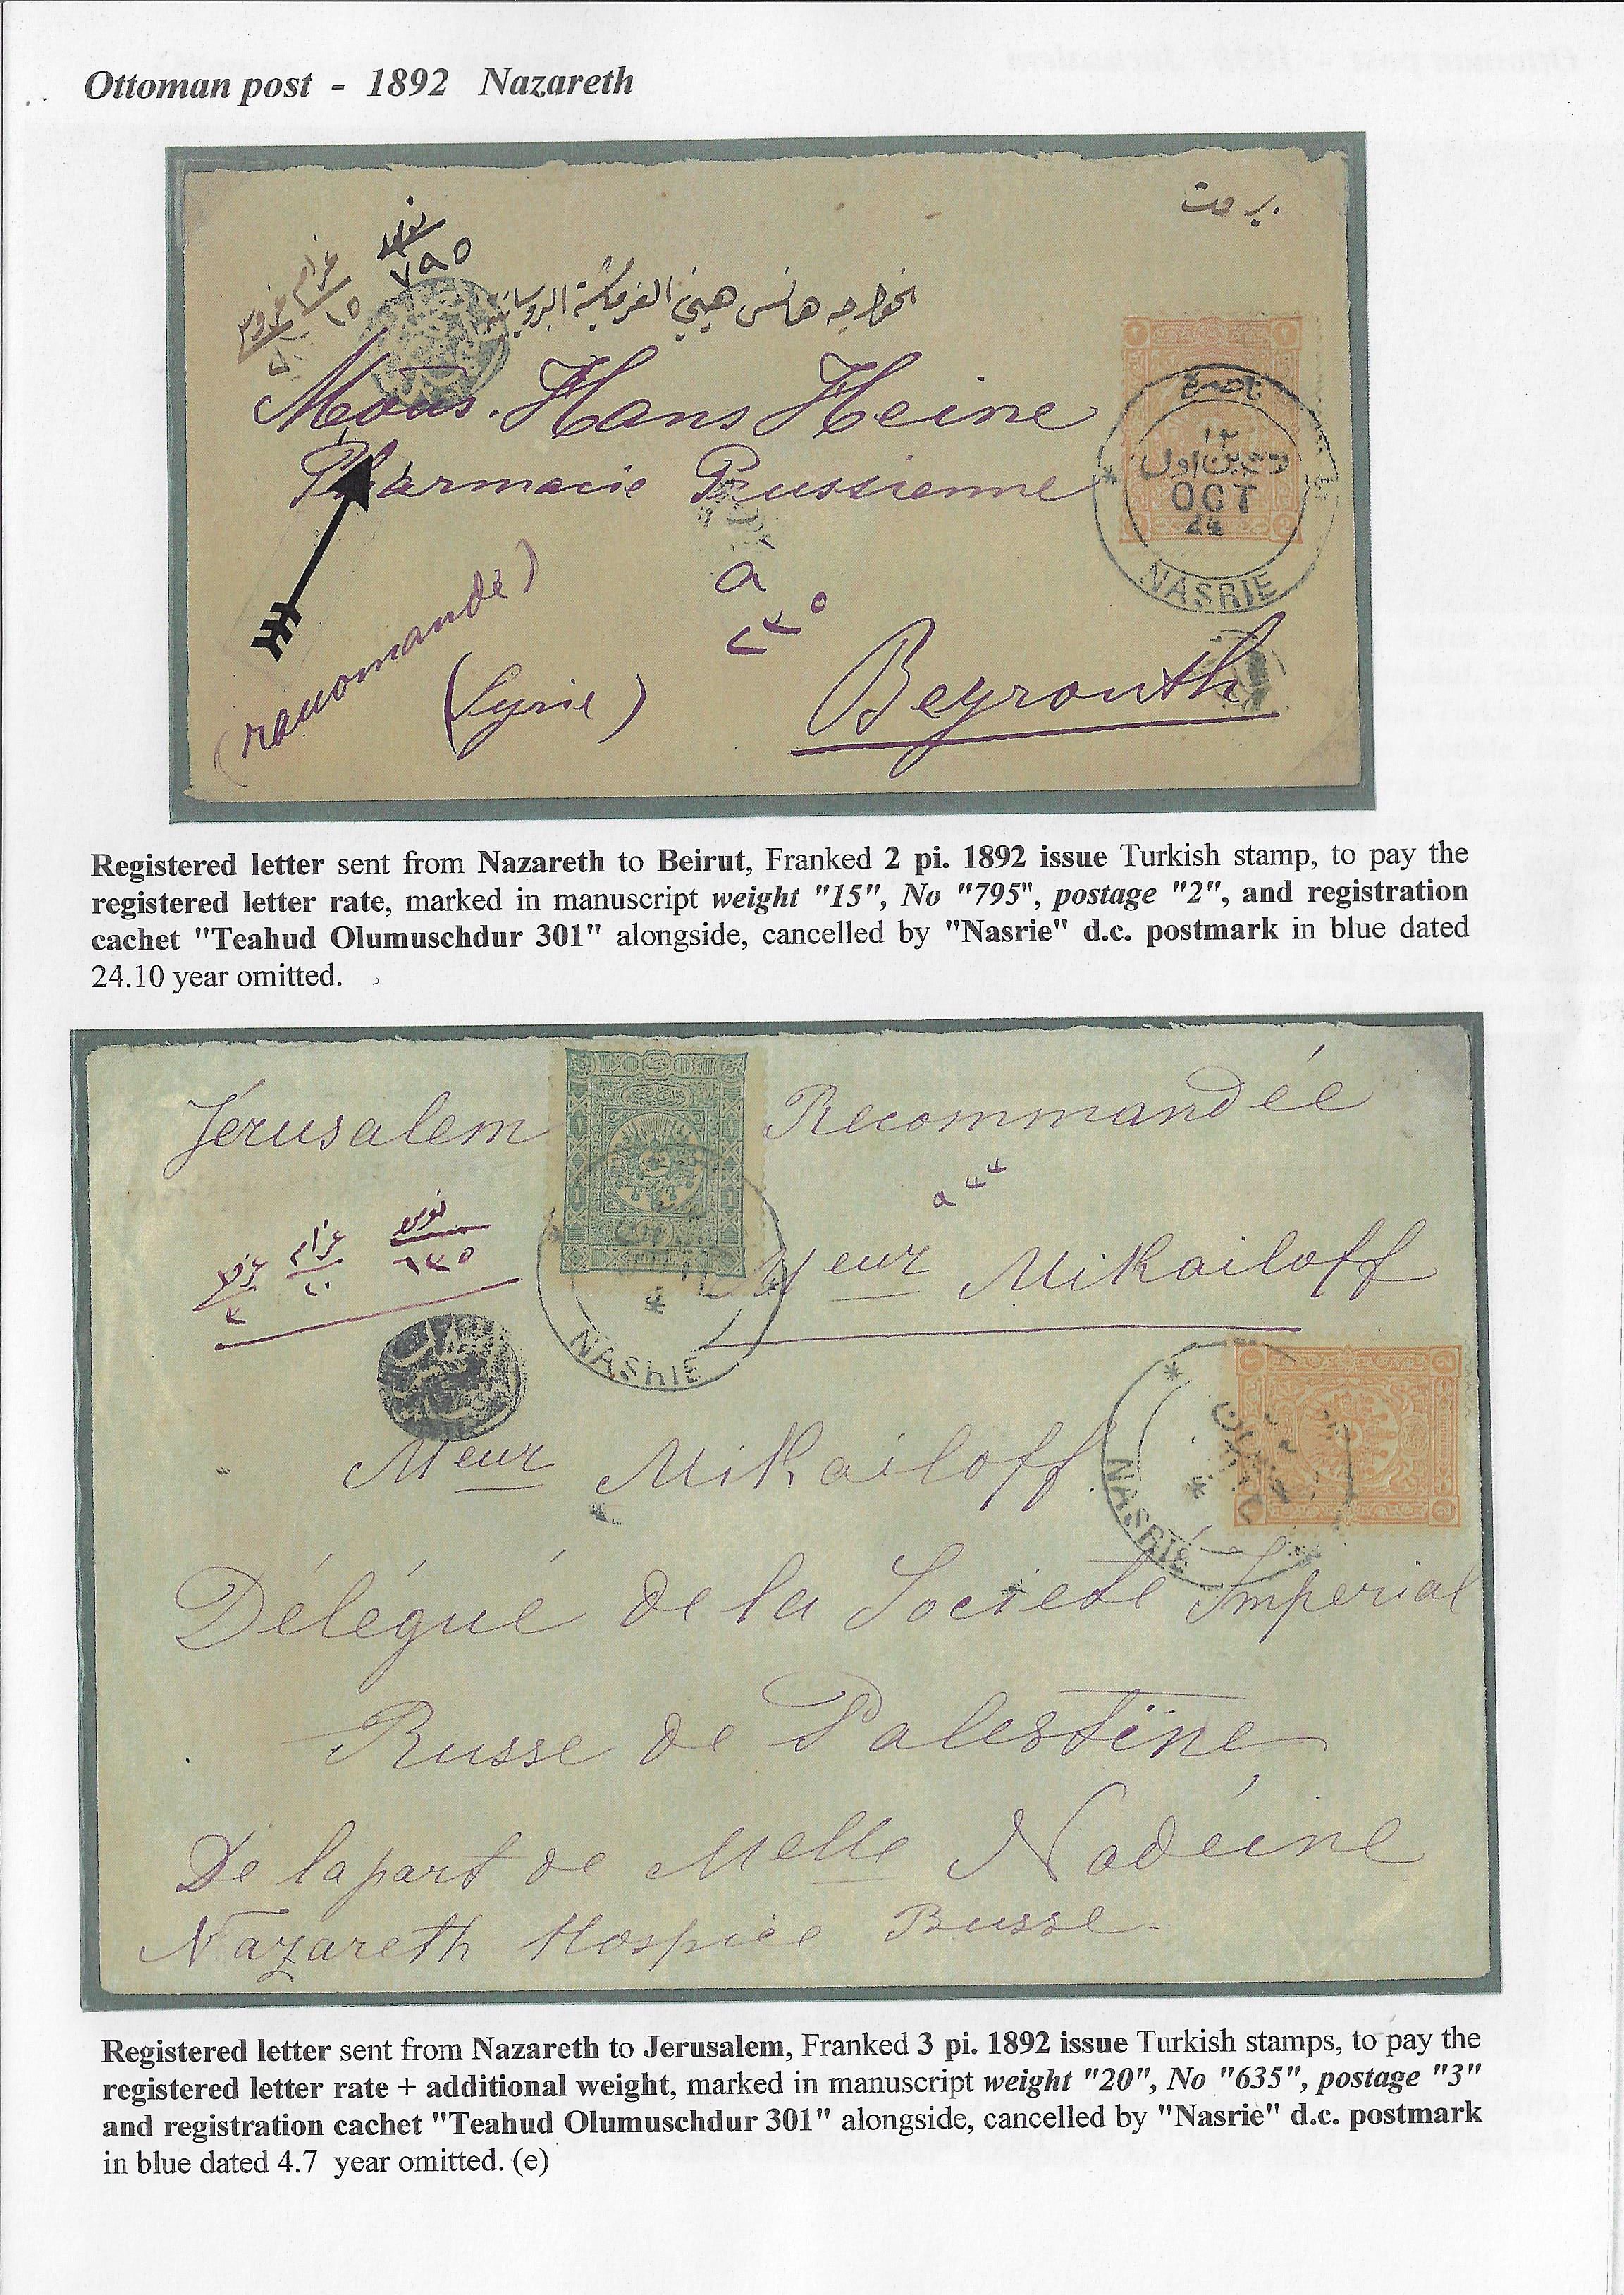 Ottoman post - 1892 Nazareth
نومرو
٧٩٥
غرام
١٥
غروش
الخواجه هانس هيني الفرمشية البروسيانية
Mons. Hans Heine
Pharmacie Prussienne
à
Beyrouth
(Syrie)
(racomandé)
ناصره
١٢
تشرين اول
OCT
24
NASRIE
Registered letter sent from Nazareth to Beirut, Franked 2 pi. 1892 issue Turkish stamp, to pay the
registered letter rate, marked in manuscript weight "15", No "795", postage "2", and registration
cachet "Teahud Olumuschdur 301" alongside, cancelled by "Nasrie" d.c. postmark in blue dated
24.10 year omitted.
Jérusalem Recommandée
نومرو
٦٣٥
غرام
٢٠
غروش
٣
Meur Mikailoff
NASRIE
Meur Mikailoff
NASRIE
Délégué de la Societé Imperial
Russe de Palestine
De lapart de Melle Nadéine
Nazareth Hospice Russe.
Registered letter sent from Nazareth to Jerusalem, Franked 3 pi. 1892 issue Turkish stamps, to pay the
registered letter rate + additional weight, marked in manuscript weight "20", No "635", postage "3"
and registration cachet "Teahud Olumuschdur 301" alongside, cancelled by "Nasrie" d.c. postmark
in blue dated 4.7 year omitted. (e)